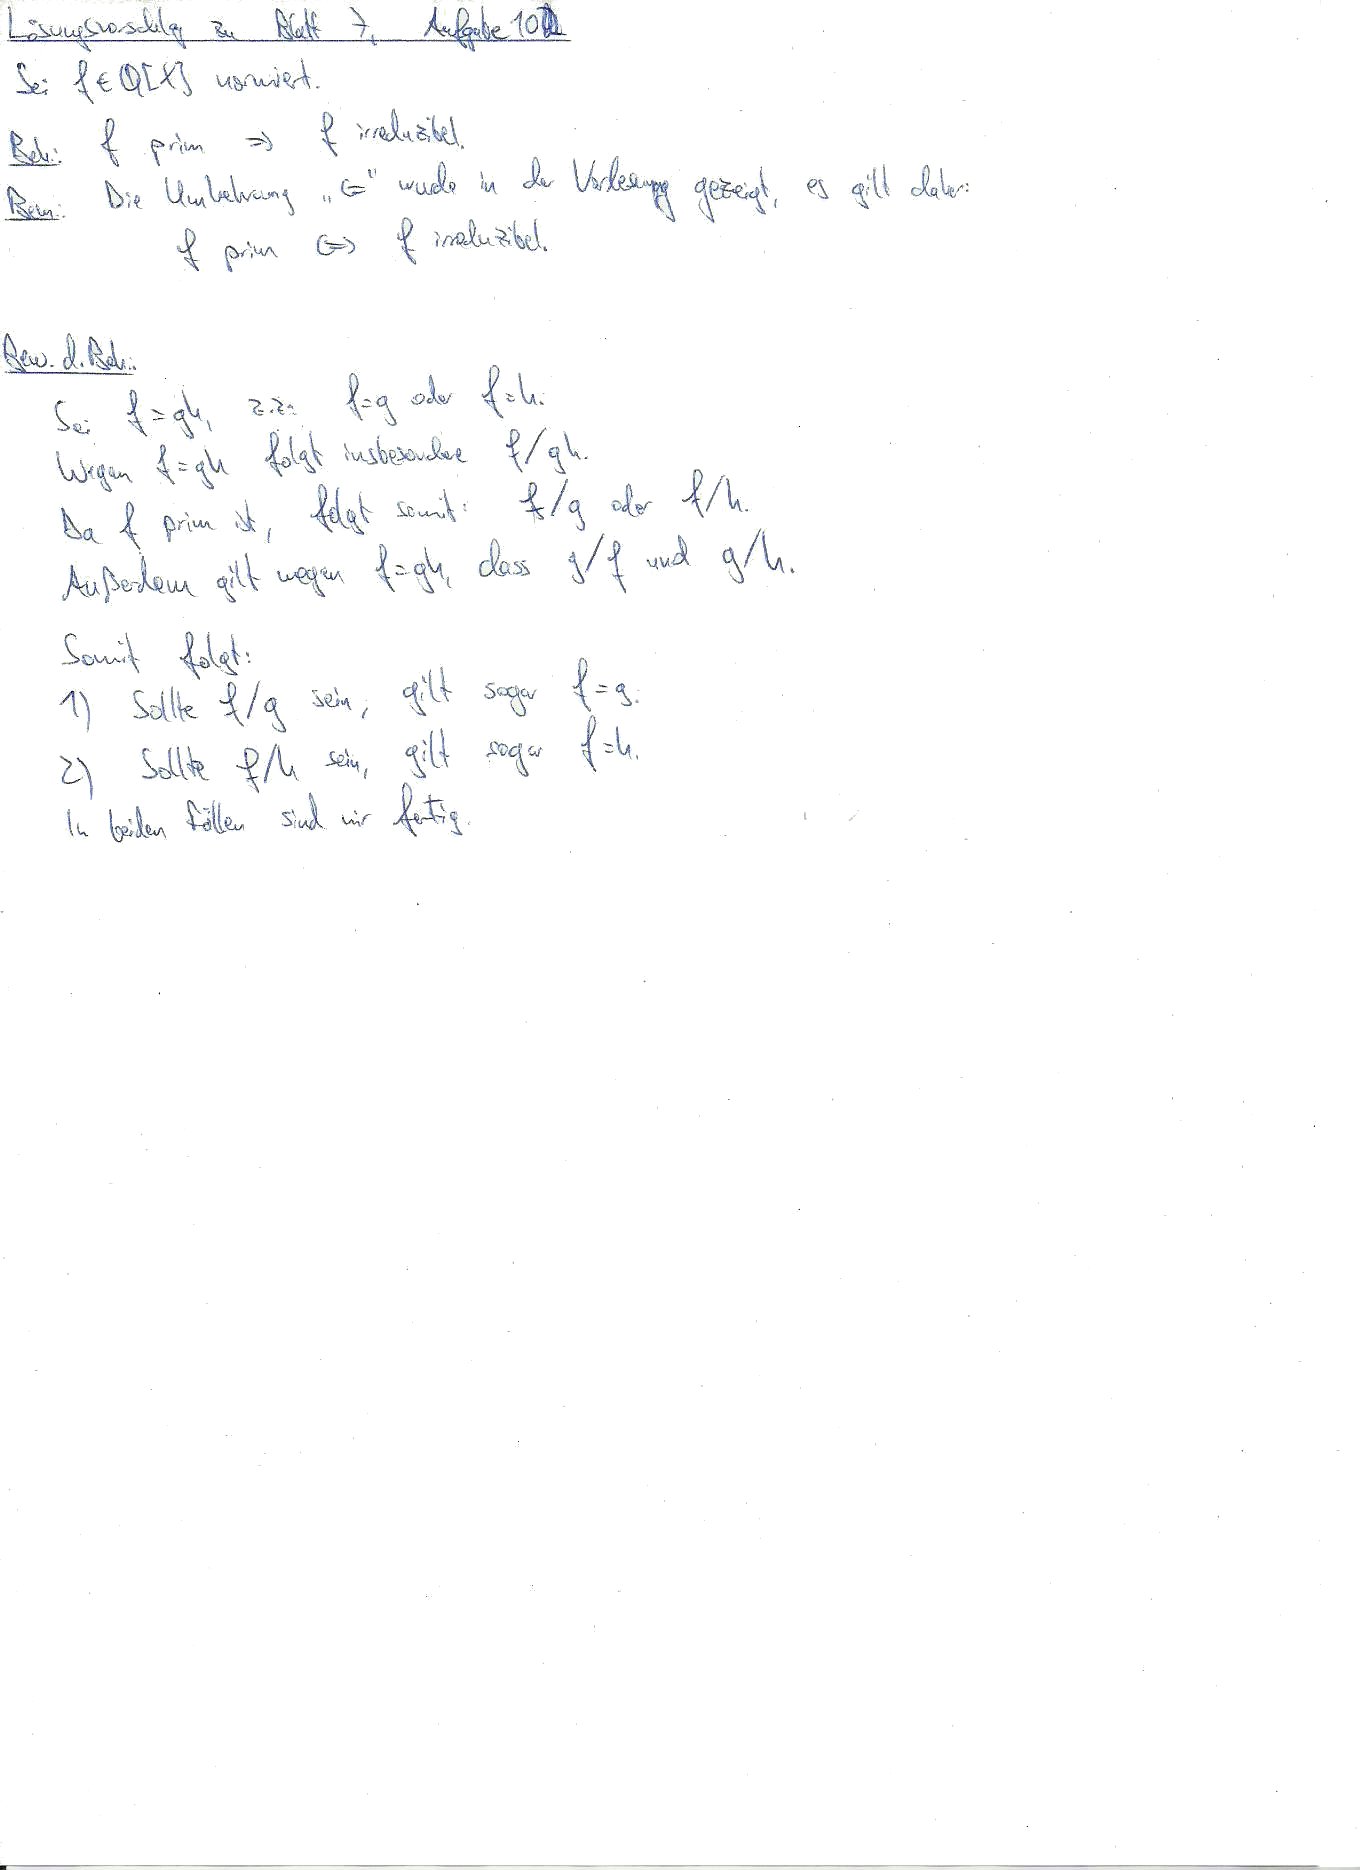 Lösungsvorschlag zu Blatt 7, Aufgabe 10
Sei f ∈ Q[X] normiert.
Beh.: f prim ⇒ f irreduzibel.
Bem.: Die Umkehrung „⇐" wurde in der Vorlesung gezeigt, es gilt daher:
f prim ⇔ f irreduzibel.
Bew. d. Beh.:
Sei f=gh, z.z.: f=g oder f=h.
Wegen f=gh folgt insbesondere f/gh.
Da f prim ist, folgt somit: f/g oder f/h.
Außerdem gilt wegen f=gh, dass g/f und g/h.
Somit folgt:
1) Sollte f/g sein, gilt sogar f=g.
2) Sollte f/h sein, gilt sogar f=h.
In beiden Fällen sind wir fertig.